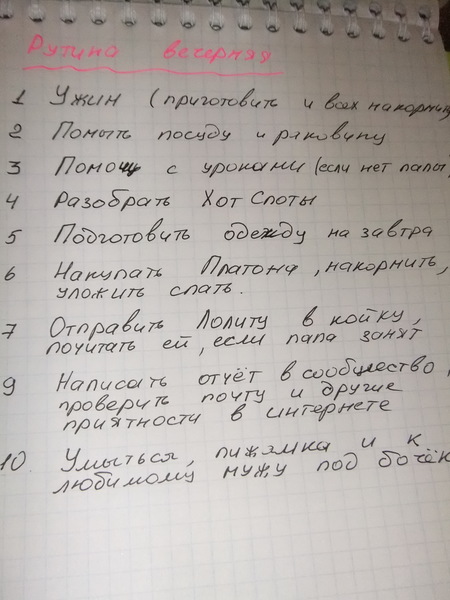 Рутина вечерняя
1 Ужин (приготовить и всех накормить
2 Помыть посуду и раковину
3 Помочь с уроками (если нет папы)
4 Разобрать Хот Споты
5 Подготовить одежду на завтра
6 Накупать Платона, накормить,
уложить спать.
7 Отправить Лолиту в койку,
почитать ей, если папа занят
9 Написать отчёт в сообщество,
проверить почту и другие
приятности в интернете
10. Умыться, пижамка и к
любимому мужу под бочёк